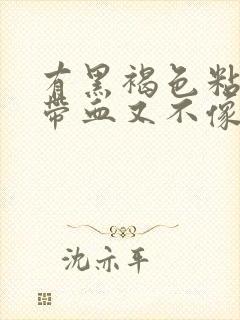 有黑褐色粘
带血又不像
沈亦平